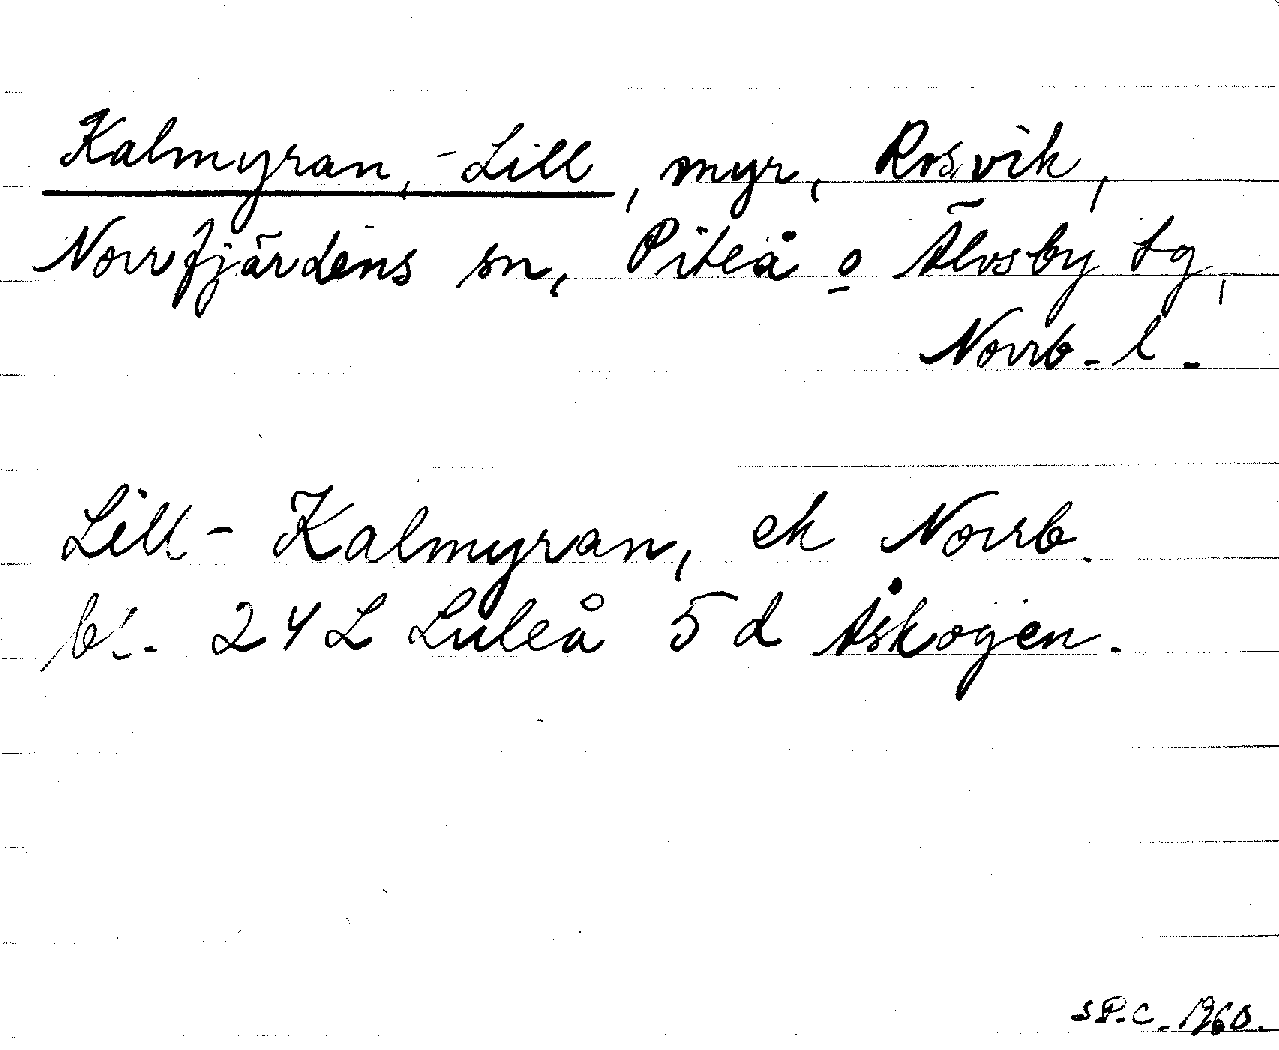 Kalmyran, -Lill, myr, Rosvik,
Norrfjärdens sn, Piteå o Älvsby tg,
Norrb. l.
Lill-Kalmyran, ek Norrb.
bl. 24L Luleå 5d Åskogen.
SP.C. 1960.